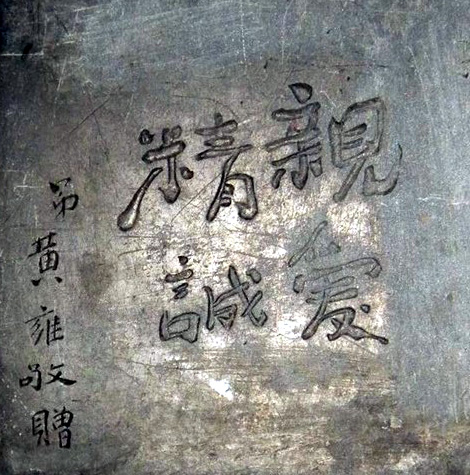 親愛
精誠
弟黃雍敬贈